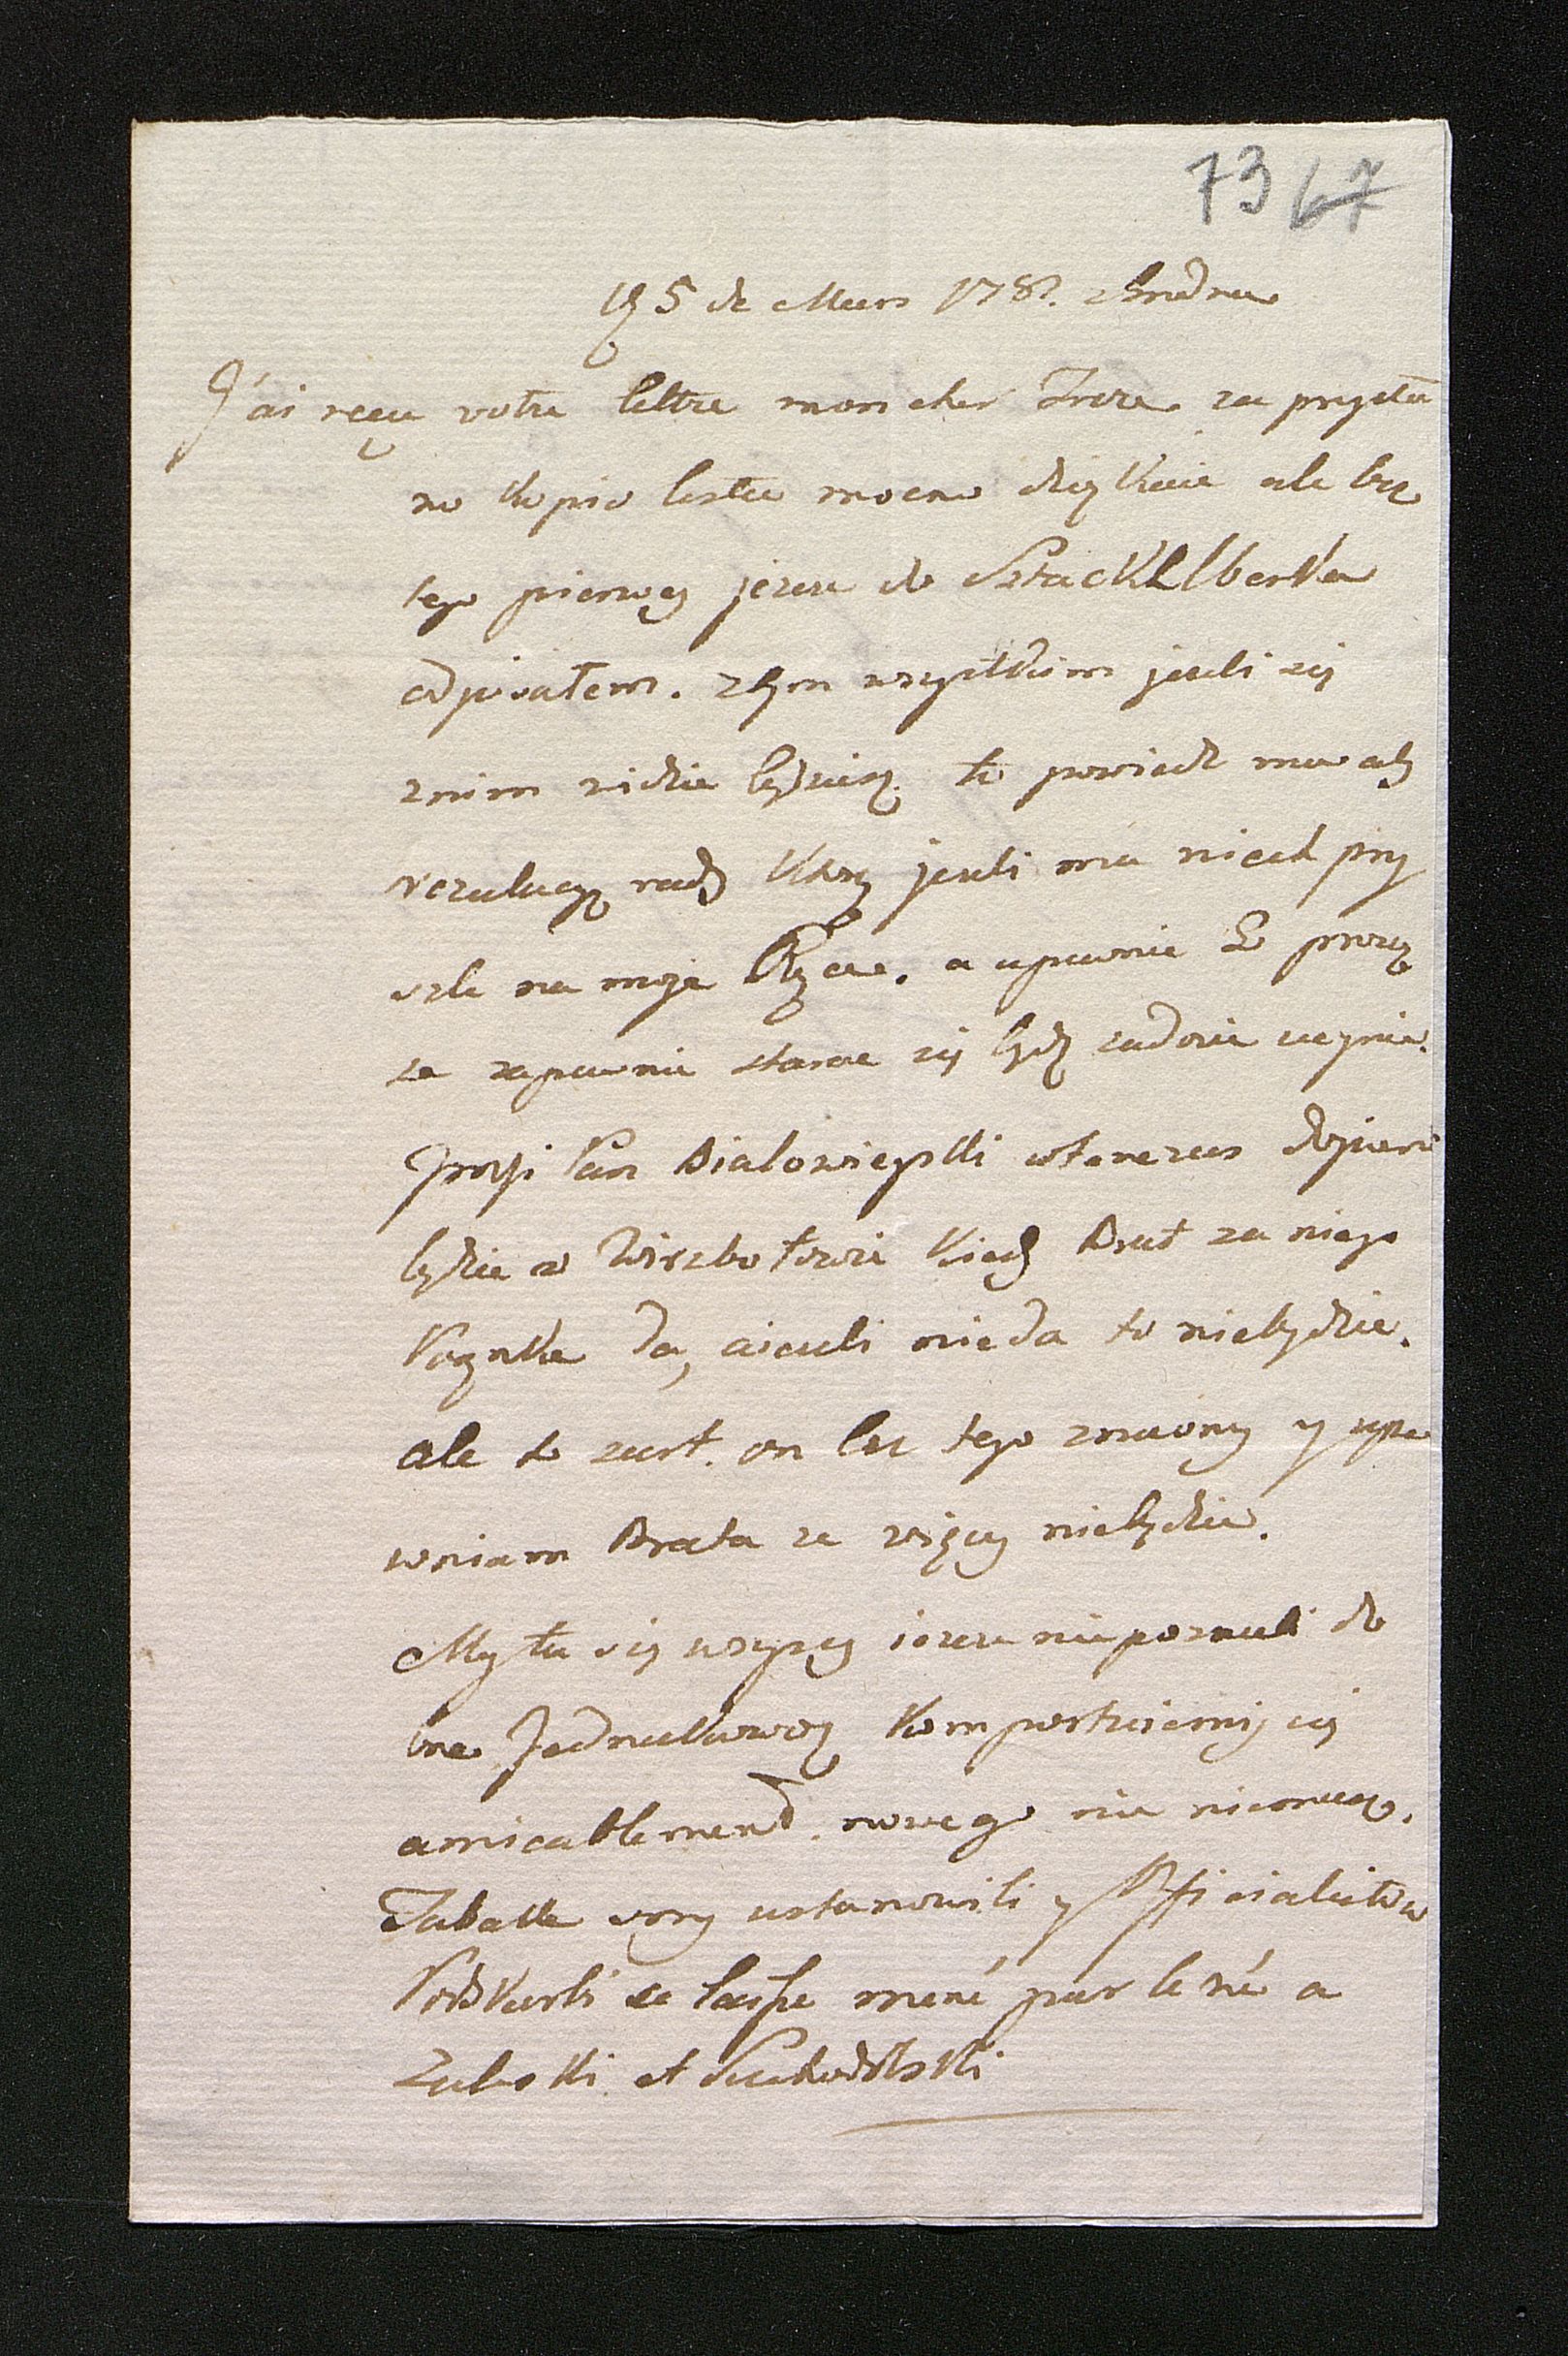 73 67
5 de Mars 178 z Grodna
J'ai reçu votre lettre mon cher Frere za przysła
no kopio listu mocno dziękuie ale bez
tego pierwey jeszcze do Sztackelberka
odpisałem. z tym wszystkim jesli się
z nim widzie będziesz to powiedz mu aby
rezolucyę rady jesli ma niech przy
szle na moje Ręce. a upewnie Go proszę
ze zapewnie starac się będę zadosic uczynic.
Prosi Pan Bialowieyski wtenczas dopiero
będzie w Wierzbołowie kiedy Brat za niego
da, a iesli nieda to niebędzie.
ale to zart. on bez tego y upe
wniam Brata ze więcy niebędzie.
My tu się wszyscy ieszcze niepoznali do
bre Jednakowoz komportuiemy się
amicablement. nowego nic niemasz.
Tabakke ustanowili y Officialistow
Podskarbi se laisse mené par le né a
Zaleski et Suchodolski